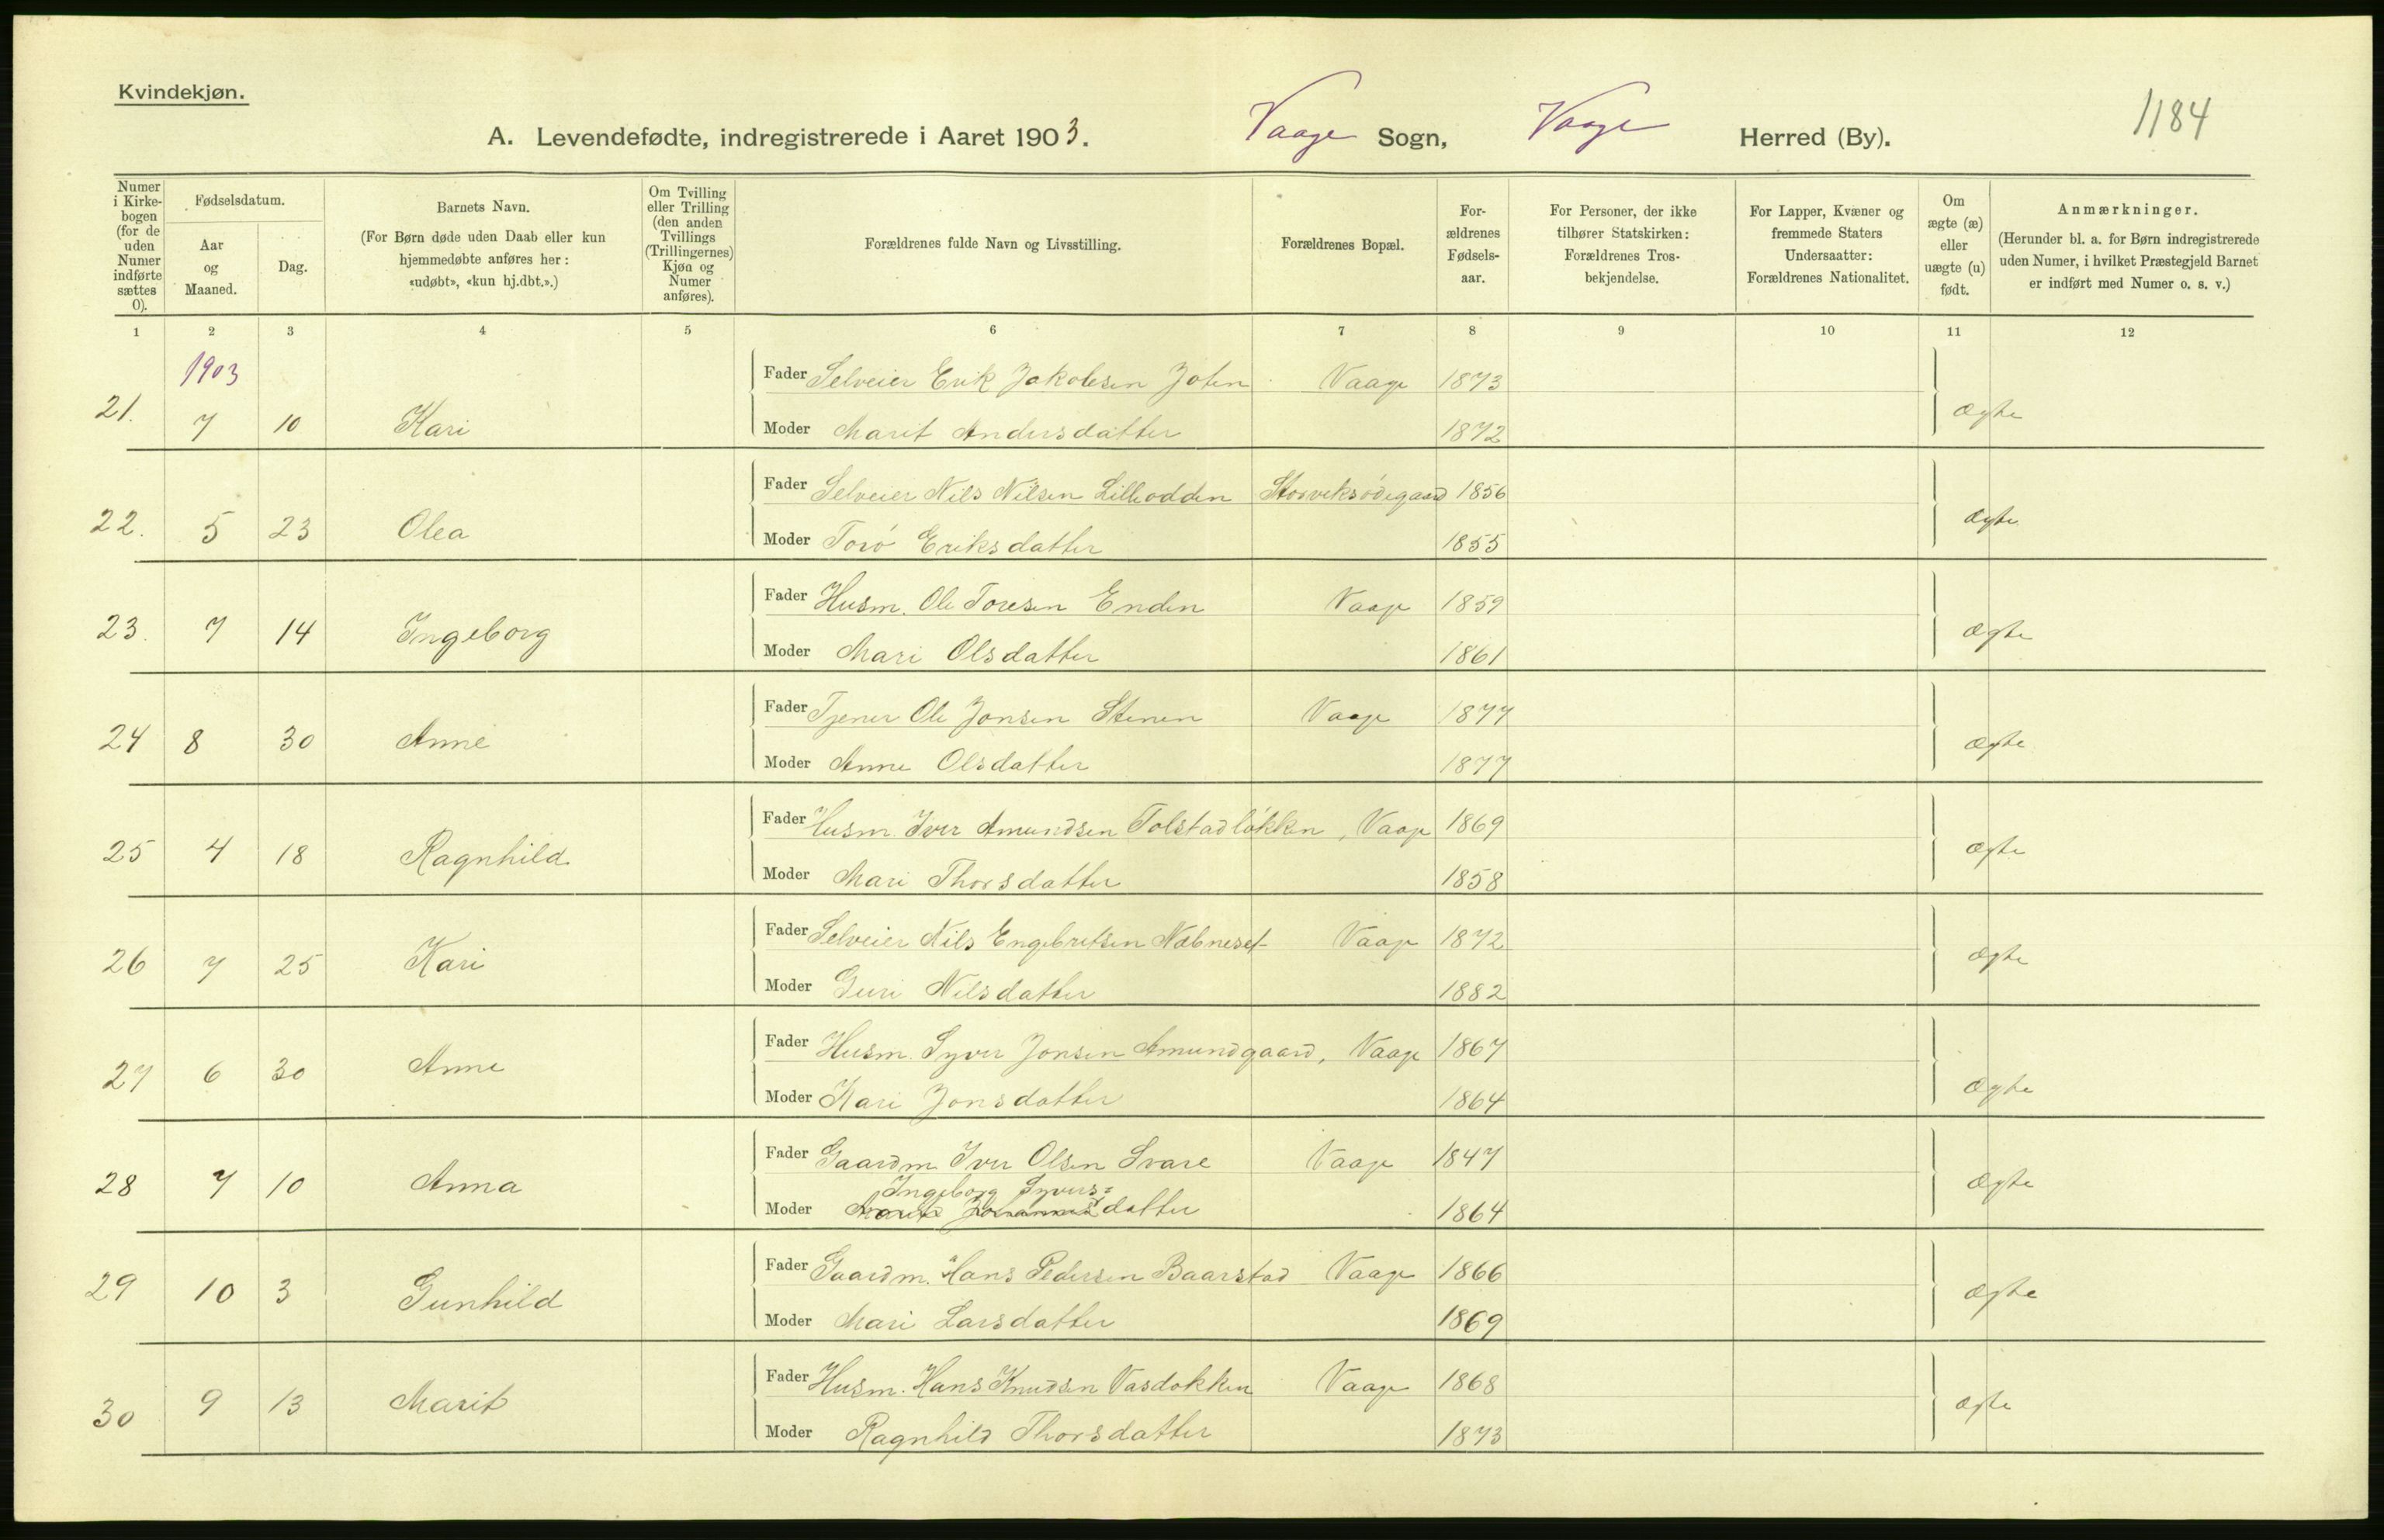 Kvindekjøn.
1184
A. Levendefødte, indregistrerede i Aaret 1903. Vaage Sogn, Vaage Herred (By).
Numer i Kirkebogen (for de uden Numer indførte sættes 0).
Fødselsdatum.
Aar og Maaned.
Dag.
Barnets Navn.
(For Børn døde uden Daab eller kun hjemmedøbte anføres her: «udøbt», «kun hj.dbt.».)
Om Tvilling eller Trilling (den anden Tvillings (Trillingernes) Kjøn og Numer anføres).
Forældrenes fulde Navn og Livsstilling.
Forældrenes Bopæl.
Forældrenes Fødselsaar.
For Personer, der ikke tilhører Statskirken: Forældrenes Trosbekjendelse.
For Lapper, Kvæner og fremmede Staters Undersaatter: Forældrenes Nationalitet.
Om ægte (æ) eller uægte (u) født.
Anmærkninger.
(Herunder bl. a. for Børn indregistrerede uden Numer, i hvilket Præstegjeld Barnet er indført med Numer o. s. v.)
1 2 3 4 5 6 7 8 9 10 11 12
1903
Fader Selveier Erik Jakobsen Vaage 1873
21. 7 10 Kari ægte
Moder Marit Andersdatter 1872
Fader Selveier Nils Nilsen Lilleodden Storviksødegaard 1856
22. 5 23 Olea ægte
Moder Torø Eriksdatter 1855
Fader Husm. Ole Toresen Enden Vaage 1859
23. 7 14 Ingeborg ægte
Moder Mari Olsdatter 1861
Fader Tjener Ole Jonsen Stenen Vaage 1877
24 8 30 Anne ægte
Moder Anne Olsdatter 1877
Fader Husm. Iver Amundsen Tolstadløkken, Vaage 1869
25 4 18 Ragnhild ægte
Moder Mari Thorsdatter 1858
Fader Selveier Nils Engebretsen Næbneset Vaage 1872
26 7 25 Kari ægte
Moder Guri Nilsdatter 1882
Fader Husm. Syver Jonsen Amundgaard, Vaage 1867
27 6 30 Anne ægte
Moder Kari Jonsdatter 1864
Fader Gaardm. Iver Olsen Svare Vaage 1847
28 7 10 Anna ægte
Ingeborg Syvers=
Moder Marit Johannesdatter 1864
Fader Gaardm. Hans Pedersen Baarstad Vaage 1866
29 10 3 Gunhild ægte
Moder Mari Larsdatter 1869
Fader Husm. Hans Knudsen Vasdokken Vaage 1868
30 9 13 Marit ægte
Moder Ragnhild Thorsdatter 1873